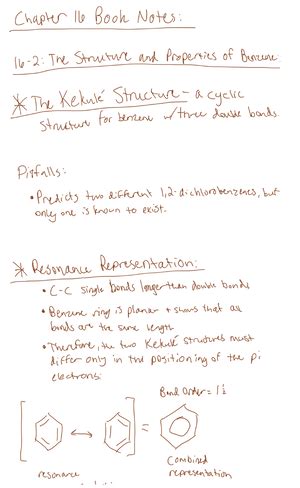 Chapter 16 Book Notes:
16-2: The Structure and Properties of Benzene
* The Kekulé Structure - a cyclic
structure for benzene w/ three double bonds.
Pitfalls:
• Predicts two different 1,2-dichlorobenzenes, but
only one is known to exist.
* Resonance Representation:
• C-C single bonds longer than double bonds
• Benzene ring is planar + shows that all
bonds are the same length
• Therefore, the two Kekulé structures must
differ only in the positioning of the pi
electrons:
Bond Order = 1½
=
resonance
Combined
representation